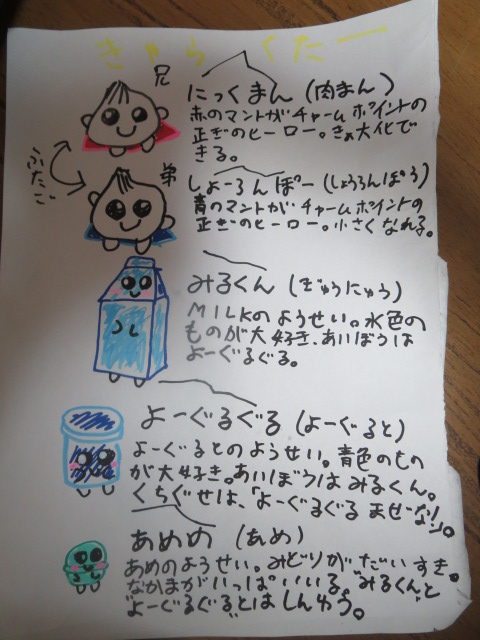 きゃらくたー
兄
にっくまん(肉まん)
赤のマントがチャームポイントの
正ぎのヒーロー。きょ大化で
きる。
ふたご
弟
しょーろんぽー(しょうろんぽう)
青のマントがチャームポイントの
正ぎのヒーロー。小さくなれる。
みるくん(ぎゅうにゅう)
MILKのようせい。水色の
ものが大好き、あいぼうは
よーぐるぐる。
よーぐるぐる(よーぐると)
よーぐるとのようせい。青色のもの
が大好き。あいぼうはみるくん。
くちぐせは、「よーぐるぐるまぜーなり」。
あめめ(あめ)
あめのようせい。みどりがだいすき。
なかまがいっぱいいる。"みるくん"と
"よーぐるぐる"とはしんゆう。